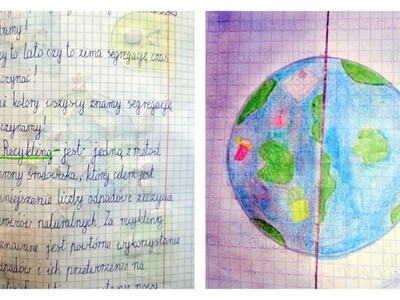 amy!
y to lato czy to zima segregację czas
czynać!
e kolory wszyscy znamy segregację
czynamy!
Recykling - jest - jedną z metod
hrony środowiska, której celem jest
mniejszenie liczby odpadów i zużycia
rowców naturalnych. Za recykling
znawane jest powtórne wykorzystanie
padów i ich przetworzenie na